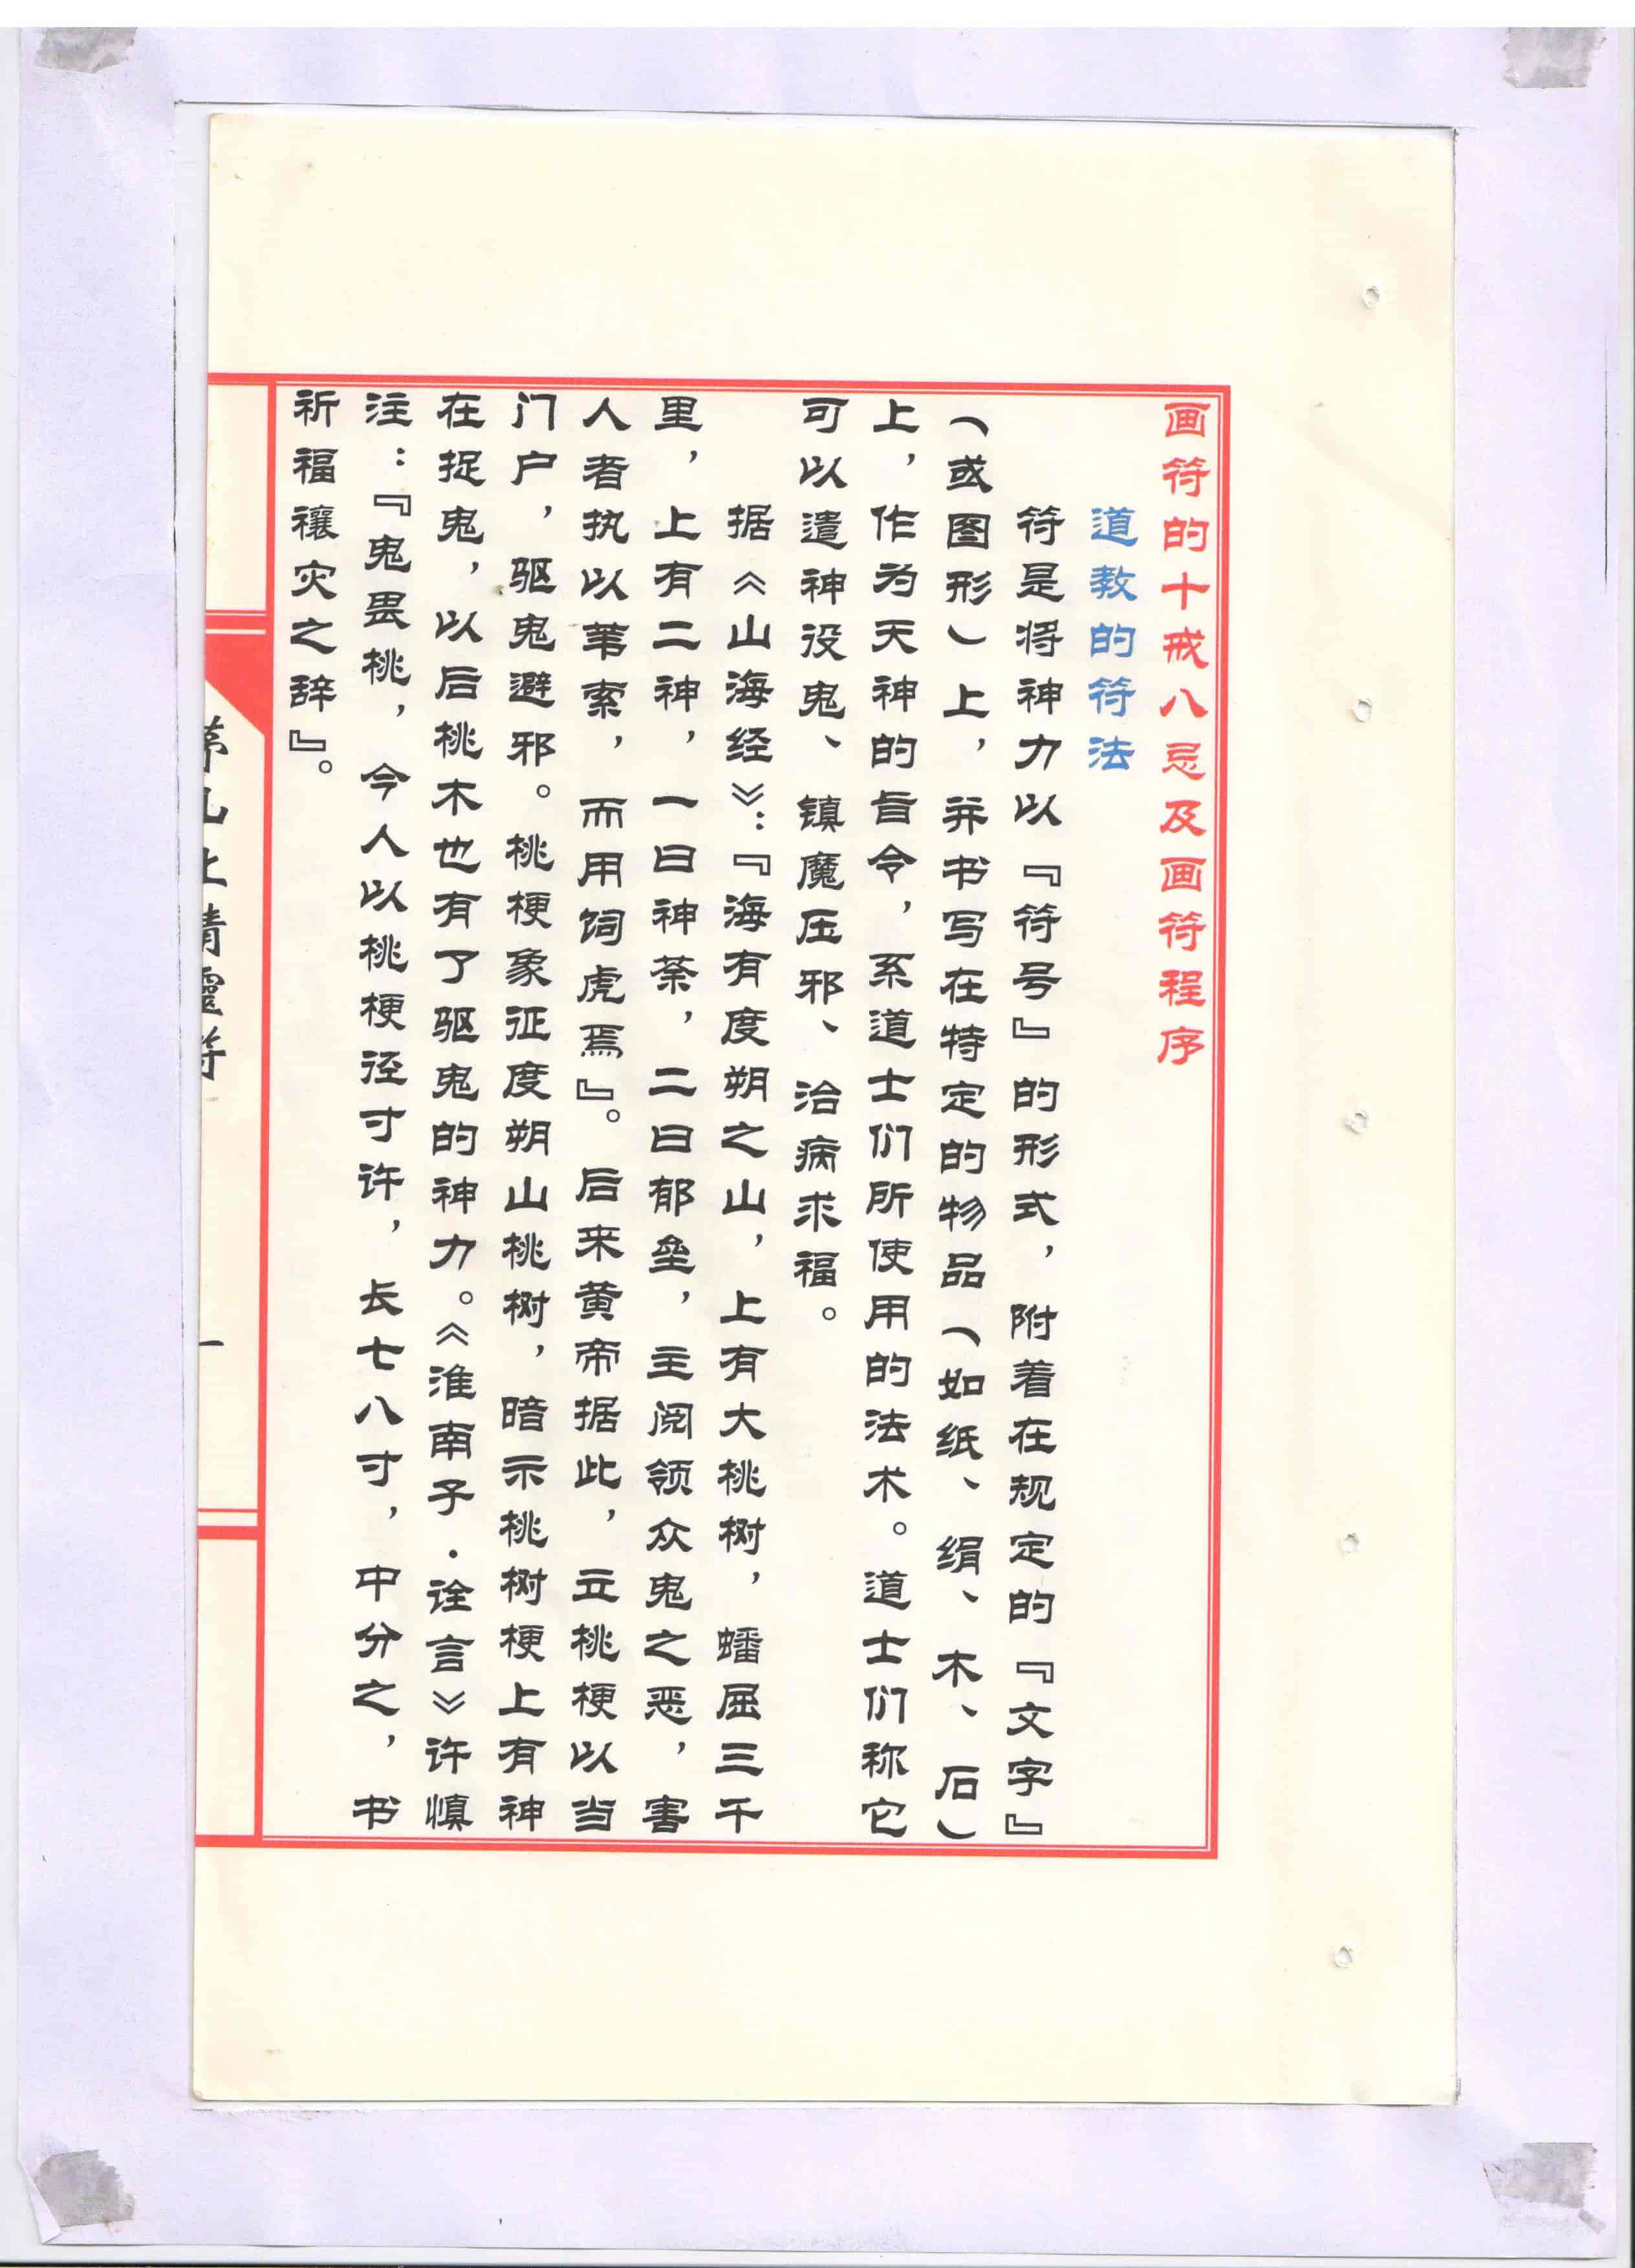 画符的十戒八忌及画符程序
道教的符法
符是将神力以『符号』的形式，附着在规定的『文字』
（或图形）上，并书写在特定的物品（如纸、绢、木、石）
上，作为天神的旨令，系道士们所使用的法术。道士们称它
可以遣神役鬼、镇魔压邪、治病求福。
据《山海经》：『海有度朔之山，上有大桃树，蟠屈三千
里，上有二神，一曰神荼，二曰郁垒，主阅领众鬼之恶，害
人者执以苇索，而用饲虎焉』。后来黄帝据此，立桃梗以当
门户，驱鬼避邪。桃梗象征度朔山桃树，暗示桃树梗上有神
在捉鬼，以后桃木也有了驱鬼的神力。《淮南子·诠言》许慎
注：『鬼畏桃，今人以桃梗径寸许，长七八寸，中分之，书
祈福禳灾之辞』。
上清灵符
一